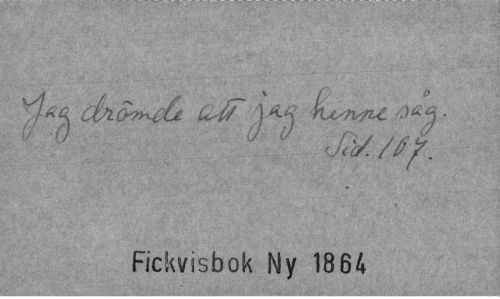 Jag drömde att jag henne såg.
Sid. 107.
Fickvisbok Ny 1864